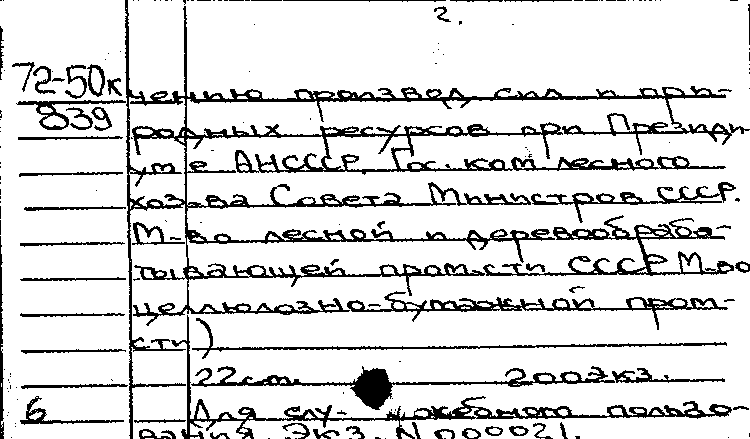 2.
72-50к
839
чению производ сил и при-
родных ресурсов при Президи-
уме АНСССР. Гос. ком лесного
хоз-ва Совета Министров СССР.
М-во лесной и деревообраба-
тывающей пром-сти СССР М-во
целлюлозно-бумажной пром-
сти)
22 ст. 200экз.
6 Для слу- жебного пользо-
вания. Экз. N 000021.